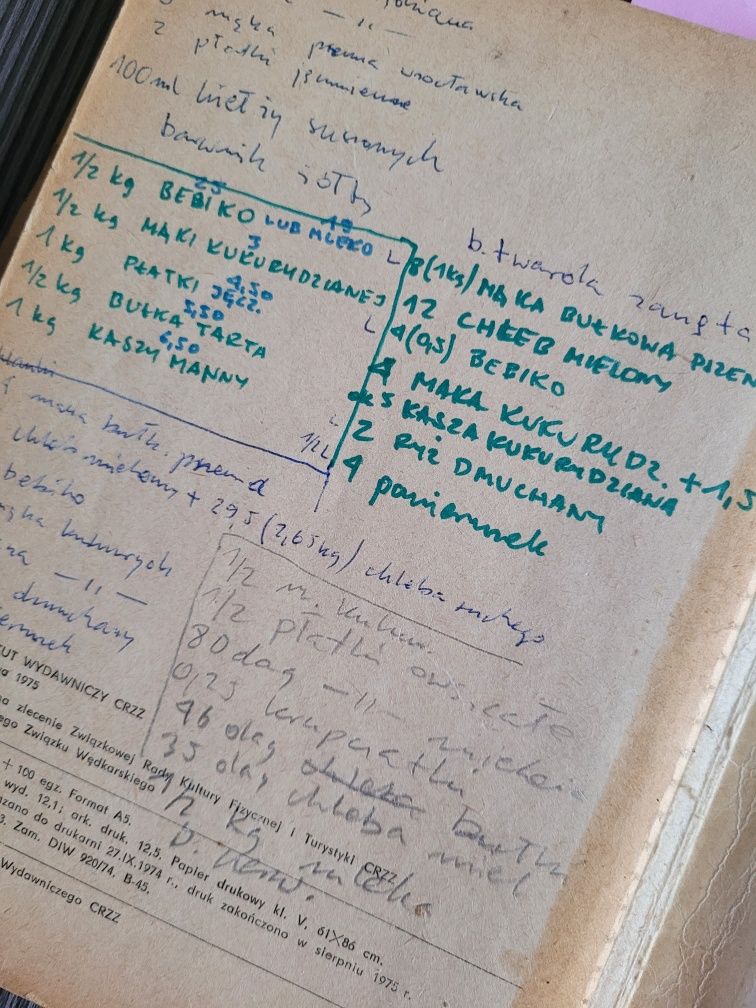 mąka — 〃 —
2 płatki pszenna wrocławska
jęczmienne
100 ml suszonych
barwnik żółty
1/2 kg BEBIKO LUB MLEKO
25 19
1/2 kg MĄKI KUKURYDZIANEJ
3
1 kg PŁATKI JĘCZ.
4,50
1/2 kg BUŁKA TARTA
5,50
1 kg KASZY MANNY
6,50
L
L
L
1/2 L
b. twarda zanęta
8 (1kg) MĄKA BUŁKOWA PSZEN
12 CHLEB MIELONY
4 (0,5) BEBIKO
4 MĄKA KUKURYDZ. + 1,5
5 KASZA KUKURYDZIANA
2 RYŻ DMUCHANY
4 pomieruszek
4 mąka bułk. pszenna
chleb mielony + 29,5 (2,65kg) chleba suchego
bebiko
mąka
— 〃 —
dmuchany
1/2 m. kukur.
1/2 płatki owsiane
80 dag — 〃 — mielone
0,25
46 dag bułki
35 dag chleba miel
1/2 kg
TUT WYDAWNICZY CRZZ
a 1975
na zlecenie Związkowej Rady Kultury Fizycznej i Turystyki CRZZ
ego Związku Wędkarskiego
+ 100 egz. Format A5.
wyd. 12,1; ark. druk. 12,5. Papier drukowy kl. V, 61×86 cm.
zano do drukarni 27.IX.1974 r., druk zakończono w sierpniu 1975 r.
3. Zam. DIW 920/74. B-45.
Wydawniczego CRZZ